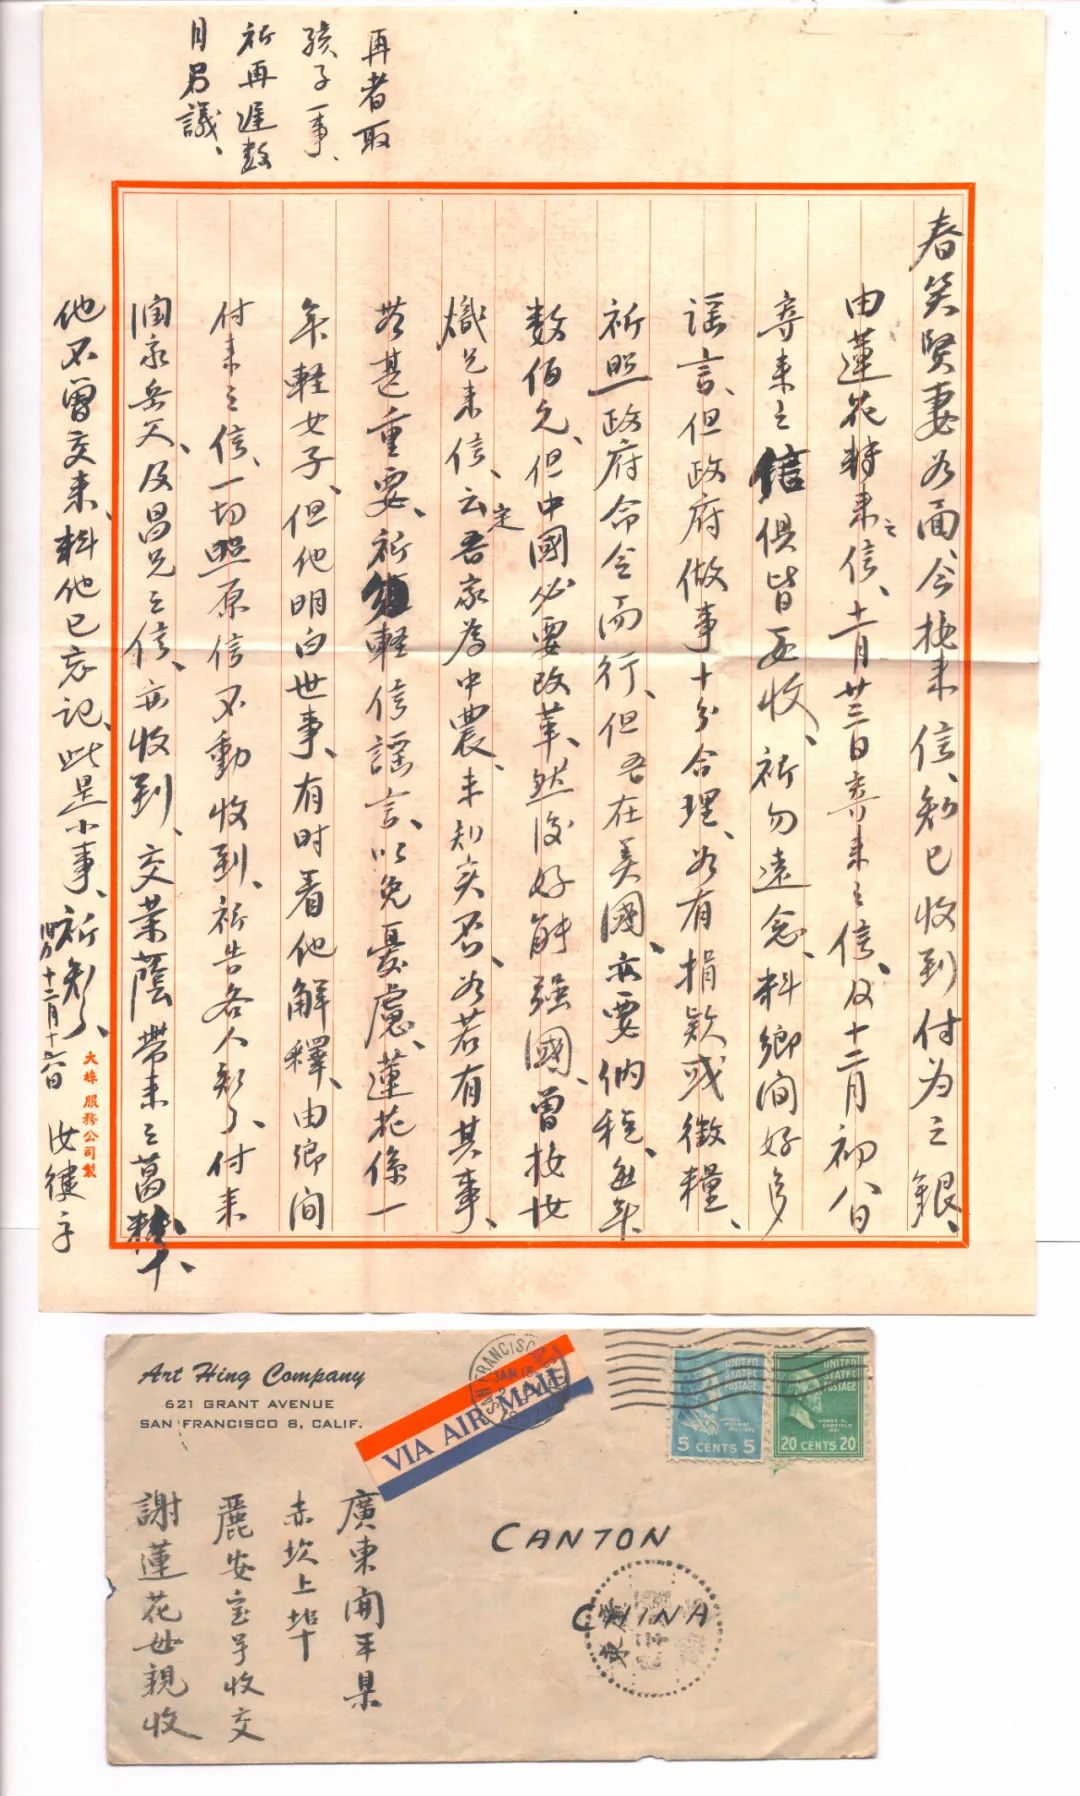 春笑賢妻如面、今接來信、知已收到付為之銀、
由蓮花轉來之信、十一月廿三日寄來之信、及十二月初八日
寄來之信俱皆妥收、祈勿遠念、料鄉間好多
謡言、但政府做事十分合理、如有捐款或徵糧、
祈照政府命令而行、但吾在美國、亦要納稅、每年
数佰元、但中國必要改革、然後好能强國、曾接廿
熾兄來信、云吾家定為中農、未知实否、如若有其事、
甚重要、祈輕信謡言、以免憂慮、蓮花係一
年輕女子、但他明白世事、有时看他解釋、由鄉間
付來之信、一切照原信不動收到、祈告各人知了、付來
潤泉岳父、及昌兄之信、亦收到、交業蔭帶來之葛
他不曾交來、料他已忘記、此是小事、祈知了、
十二月十六日 汝健字
再者取
孩子一事、
祈再遲数
月另議、
大埠服務公司製
Art Hing Company
621 GRANT AVENUE
SAN FRANCISCO 8, CALIF.
VIA AIR MAIL
SAN FRANCISCO
JAN 15
UNITED STATES POSTAGE
JAMES MONROE
5 CENTS 5
UNITED STATES POSTAGE
JAMES A. GARFIELD
20 CENTS 20
CANTON
CHINA
廣東開平県
赤坎上埠
麗安宝号收交
謝蓮花母親收